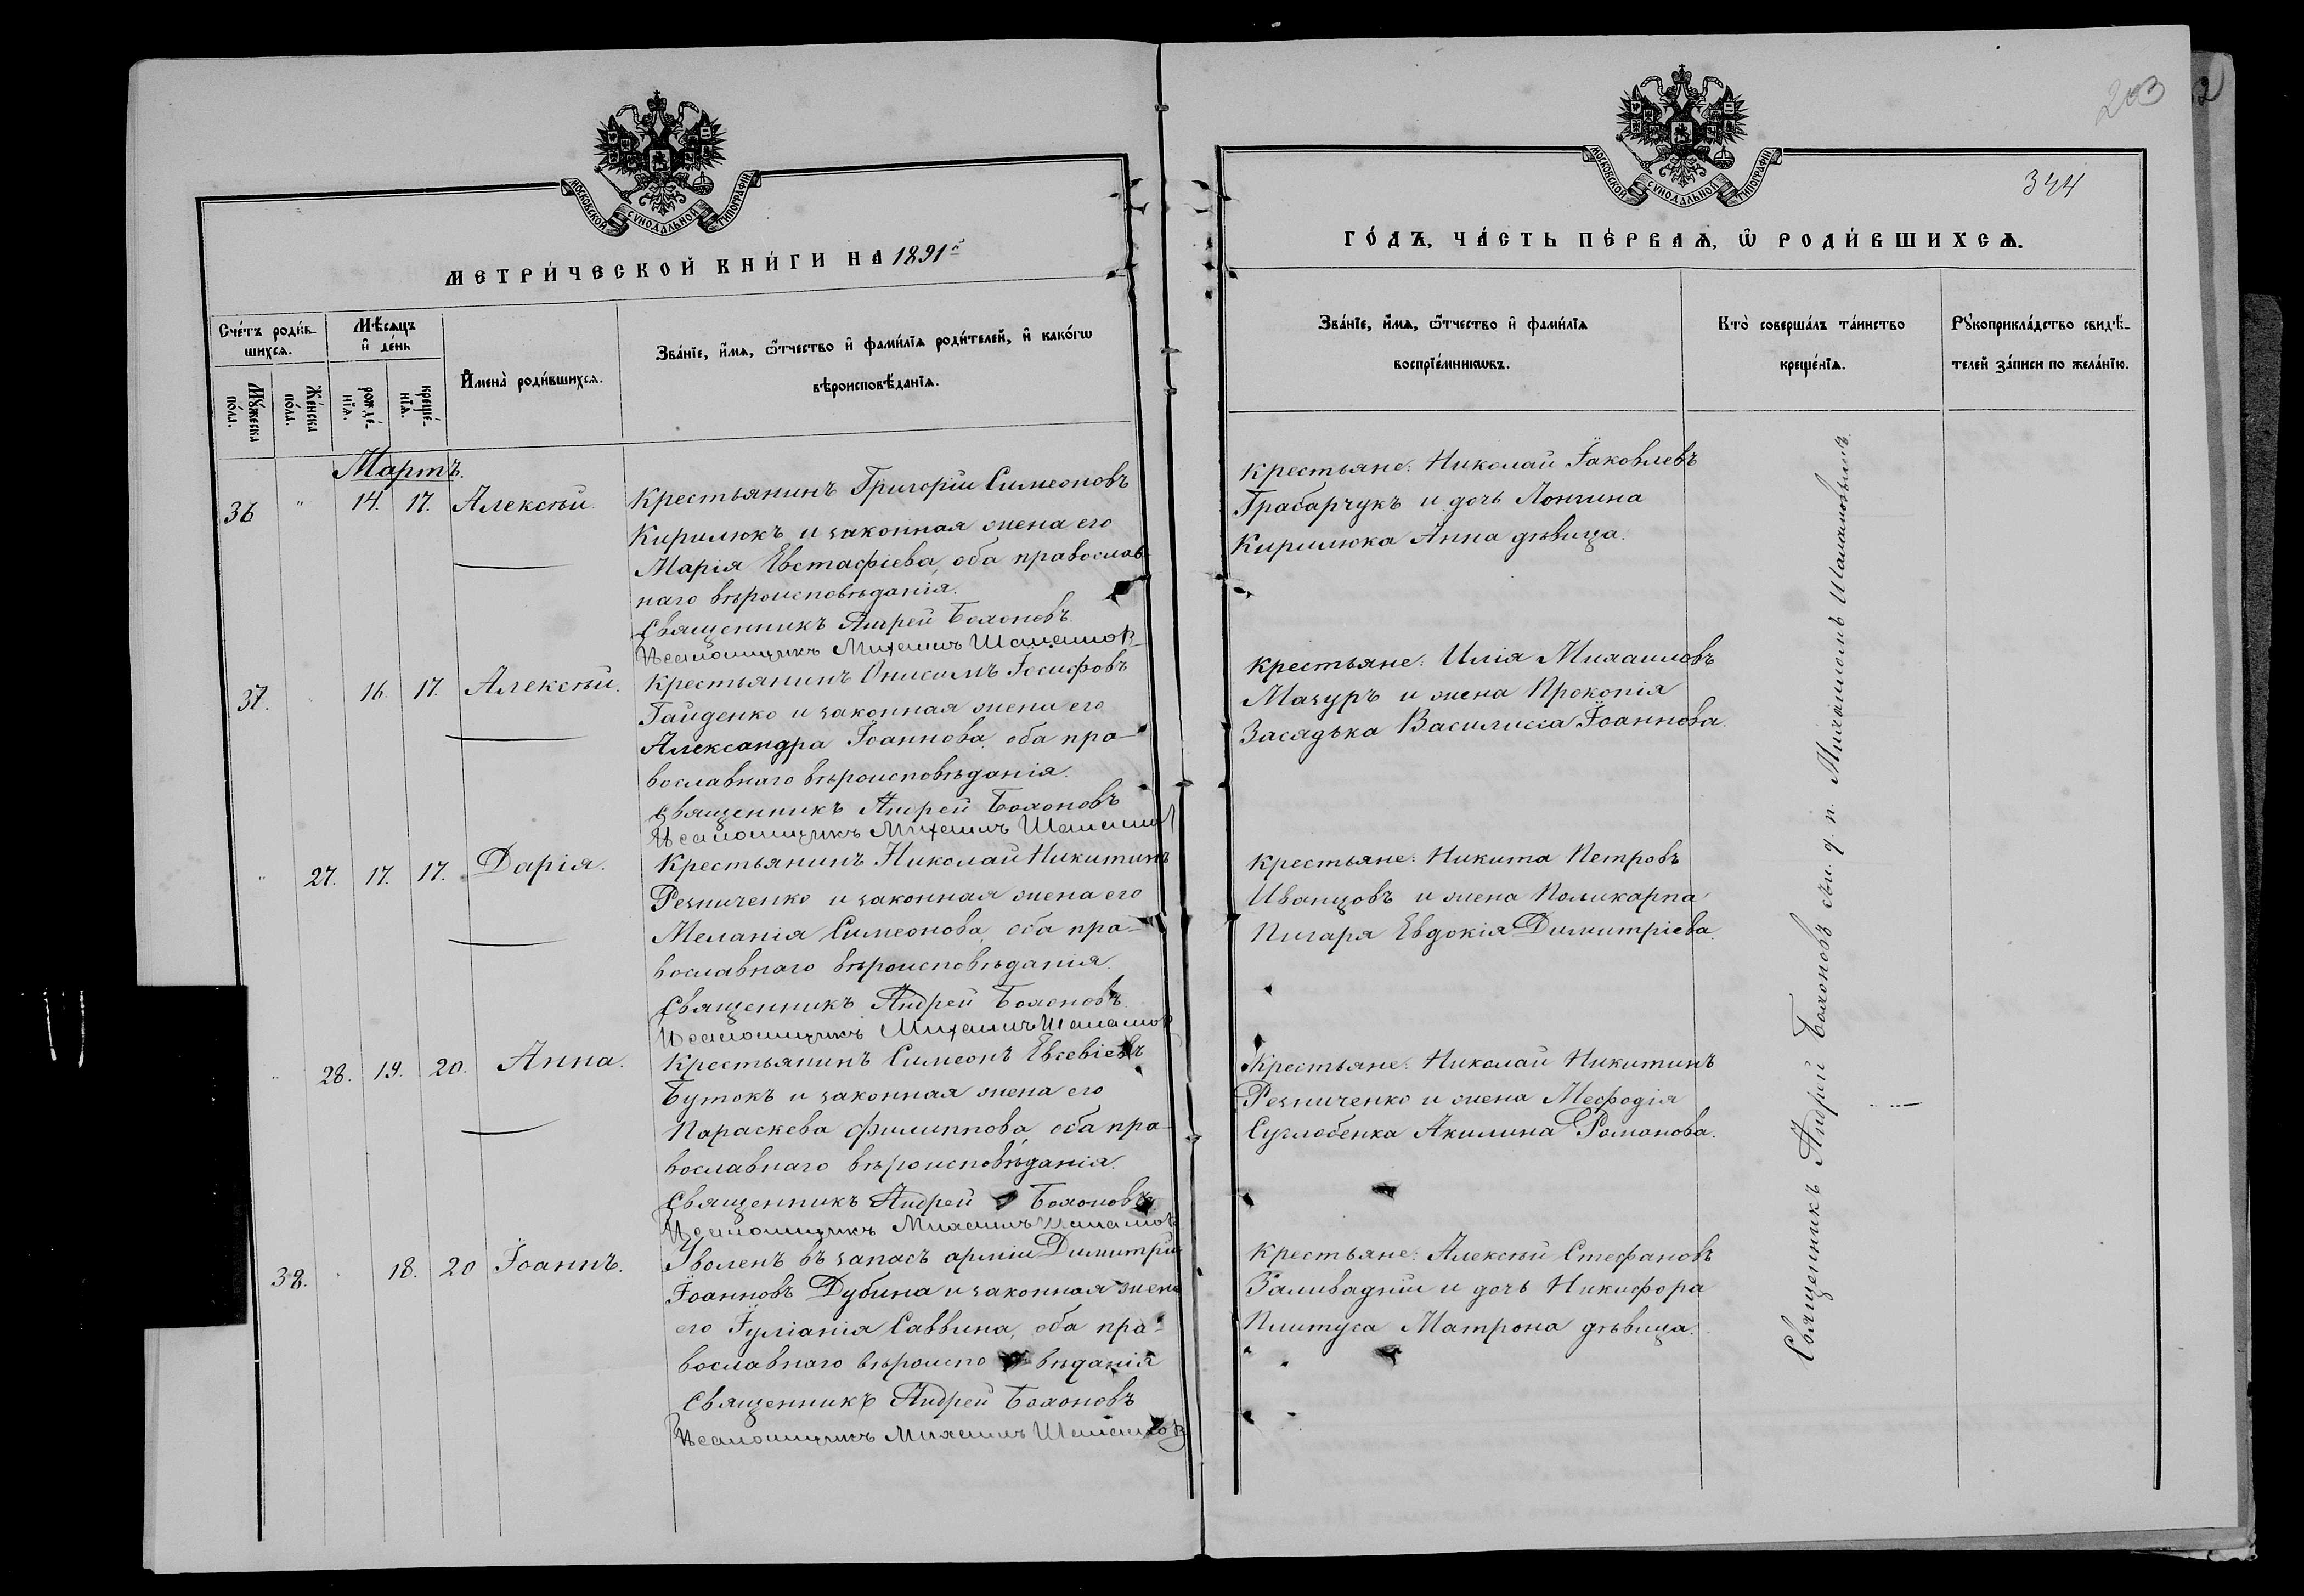 203
2
344
МОСКОВСКОЙ СѴНОДАЛЬНОЙ ТИПОГРАФІИ
МОСКОВСКОЙ СѴНОДАЛЬНОЙ ТИПОГРАФІИ
МЕТРИ́ЧЕСКОЙ КНИ́ГИ НА 1891й
ГО́ДЪ, ЧА́СТЬ ПЕ́РВАѦ, Ѡ҆ РОДИ́ВШИХСѦ.
Сче́тъ роди́в-
шихсѧ.
Мꙋ́жеска
по́ла.
Же́нска
по́ла.
Мѣ́сѧцъ
и҆ день
рожде́-
нїѧ.
креще́-
нїѧ.
И҆мена̀ роди́вшихсѧ.
Зва́нїе, и҆́мѧ, ѻ҆́тчество и҆ фами́лїѧ роди́телей, и҆ како́гѡ
вѣроисповѣ́данїѧ.
Зва́нїе, и҆́мѧ, ѻ҆́тчество и҆ фами́лїѧ
воспрїе́мникѡвъ.
Кто̀ соверша́лъ та́инство
креще́нїѧ.
Рꙋкоприкла́дство свидѣ́-
телей за́писи по жела́нїю.
Мартъ.
36 " 14. 17. Алексѣй.
Крестьянинъ Григорій Симеоновъ
Кирилюкъ и законная жена его
Марія Евстафіева, оба православ-
наго вѣроисповѣданія.
Священникъ Андрей Бохоновъ
Псаломщикъ Михаилъ Шаламов
Крестьяне: Николай Іаковлевъ
Грабарчукъ и дочь Лонгина
Кирилюка Анна дѣвица.
37. 16. 17. Алексѣй.
Крестьянинъ Онисимъ Іосифовъ
Гайденко и законная жена его
Александра Іоаннова, оба пра-
вославнаго вѣроисповѣданія.
Священникъ Андрей Бохоновъ
Псаломщикъ Михаилъ Шаламов
Крестьяне: Илія Михаиловъ
Мазуръ и жена Прокопія
Засядька Василисса Іоаннова.
" 27. 17. 17. Дарія.
Крестьянинъ Николай Никитинъ
Резниченко и законная жена его
Меланія Симеонова, оба пра-
вославнаго вѣроисповѣданія.
Священникъ Андрей Бохоновъ
Псаломщикъ Михаилъ Шаламов
Крестьяне: Никита Петровъ
Иванцовъ и жена Поликарпа
Пигаря Евдокія Димитріева.
" 28. 19. 20. Анна.
Крестьянинъ Симеонъ Евсевіевъ
Бутокъ и законная жена его
Параскева Филиппова, оба пра-
вославнаго вѣроисповѣданія.
Священникъ Андрей Бохоновъ
Псаломщикъ Михаилъ Шаламов
Крестьяне: Николай Никитинъ
Резниченко и жена Меѳодія
Суглобенка Акилина Романова.
38. " 18. 20 Іоаннъ.
Уволенъ въ запасъ арміи Димитрій
Іоанновъ Дубина и законная жена
его Іуліанія Саввина, оба пра-
вославнаго вѣроиспо вѣданія
Священникъ Андрей Бохоновъ
Псаломщикъ Михаилъ Шаламов
Крестьяне: Алексѣй Стефановъ
Заливадній и дочь Никифора
Плитуса Матрона дѣвица.
Священникъ Андрей Бохоновъ съ и. д. п. Михаиломъ Шаламовымъ.